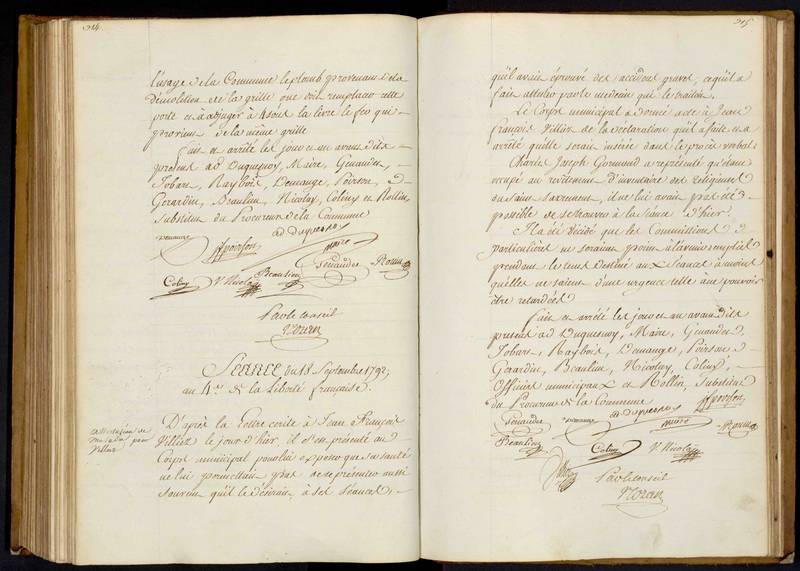 314.
l'usage de la Commune le plomb provenant de la
démolition et la grille que doit remplacer cette
porte et à adjuger à 4 sous la livre le fer qui
provient de la même grille
Fait et arrêté les jour et an avant dits
présent ad Duquesnoy, Maire, Genaudet,
Jobart, Raybois, Demange, Poirson,
Gerardin, Beaulieu, Nicolay, Coliny et Rollin,
Substitut du Procureur de la Commune
ad Duquesnoy
Demange
ff poirson
maire
Genaudet
Rollin
Coliny
V. Nicolay
Beaulieu
Par le conseil
Séance du 18 Septembre 1792,
au 4.e de la Liberté française.
attestation de
maladie pour
Villier
D'après la Lettre écrite à Jean François
Villier le jour d'hier, il s'est présenté au
Corps municipal pour lui exposer que sa santé
ne lui permettait pas de se présenter aussi
souvent qu'il le désirait à ses séances,
315
qu'il avait éprouvé des accidens graves, ce qu'il a
fait attester par le médecin qui le traitait.
Le Corps municipal a donné acte à Jean
François Villier de la déclaration qu'il a faite et a
arrêté qu'elle serait insérée dans le procès verbal.
Charles Joseph Gormand a représenté qu'étant
occupé au recolement d'inventaire des religieuses
du saint sacrement, il ne lui avait pas été
possible de se trouver à la séance d'hier.
Il a été décidé que les Commissions
particulières ne seraient point à l'avenir remplies
pendant le tems destiné aux séances à moins
qu'elles ne soient d'une urgence telle à ne pouvoir
être retardées
Fait et arrêté les jour et an avant dits
présent ad Duquesnoy, Maire, Genaudet,
Jobart, Raybois, Demange, Poirson,
Gerardin, Beaulieu, Nicolay, Coliny,
Officiers municipaux et Rollin, Substitut
du Procureur de la Commune
ff poirson
ad Duquesnoy
Genaudet
Demange
maire
Rollin
Beaulieu
Coliny
V. Nicolay
Par le conseil